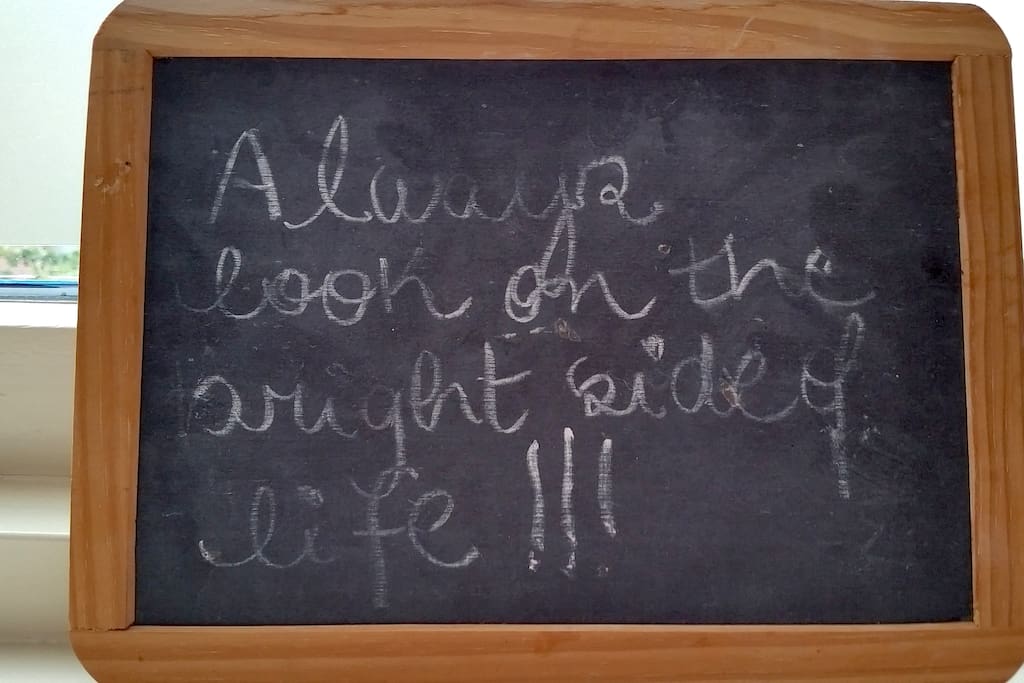 Always
look on the
bright side of
life !!!